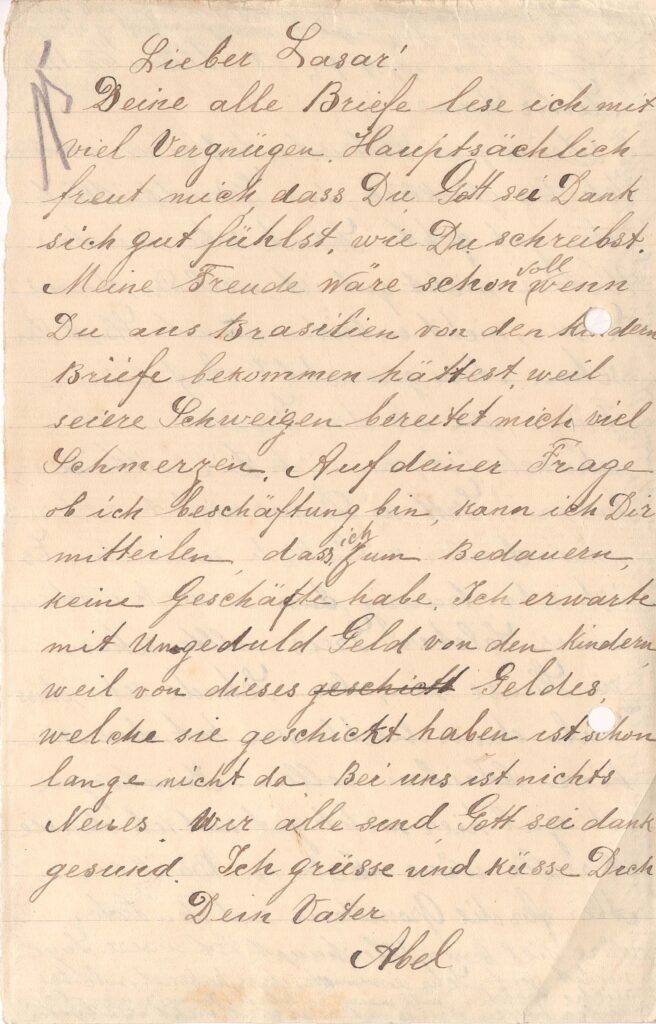 Lieber Lasar!
Deine alle Briefe lese ich mit
viel Vergnügen. Hauptsächlich
freut mich, dass Du Gott sei Dank
sich gut fühlst, wie Du schreibst.
Meine Freude wäre schon voll wenn
Du aus Brasilien von den Kindern
Briefe bekommen hättest, weil
seiere Schweigen bereitet mich viel
Schmerzen. Auf deiner Frage
ob ich beschäftung bin, kann ich Dir
mitteilen, dass ich zum Bedauern,
keine Geschäfte habe. Ich erwarte
mit Umgeduld Geld von den Kindern,
weil von dieses geschickt Geldes,
welche sie geschickt haben ist schon
lange nicht da Bei uns ist nichts
Neues Wir alle sind, Gott sei dank
gesund. Ich grüsse und küsse Dich
Dein Vater
Abel